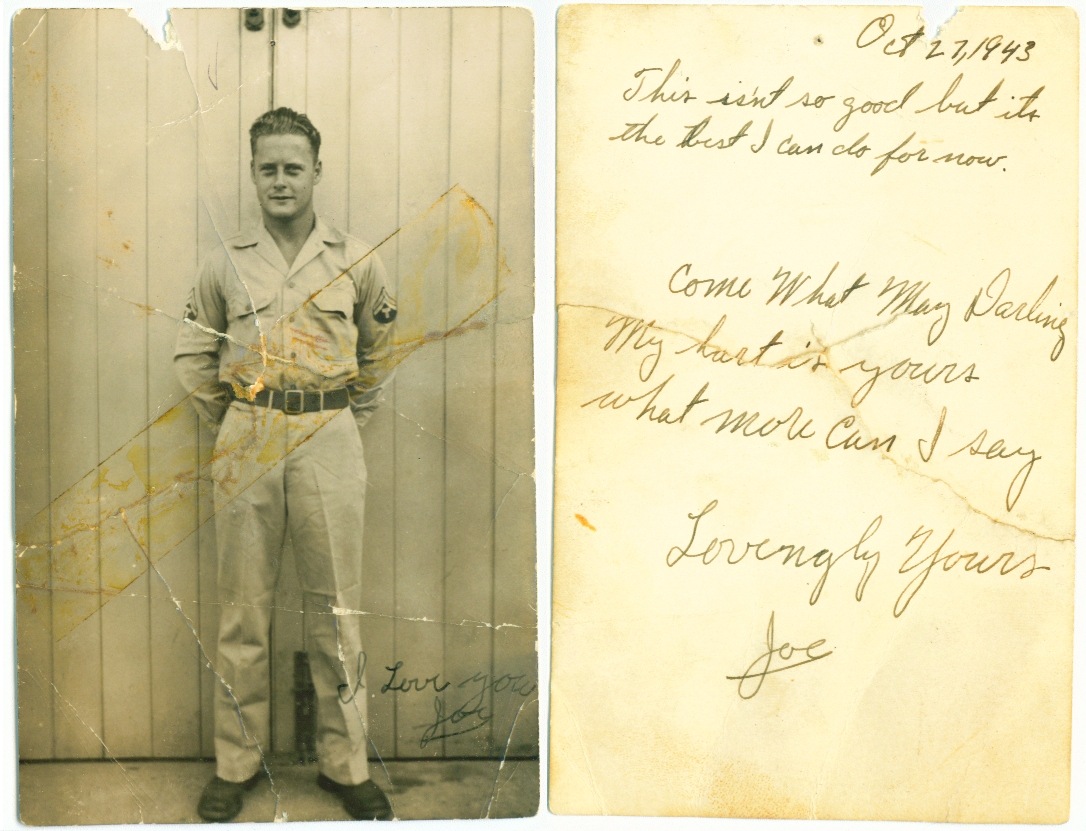 I Love you
Joe
Oct 27, 1943
This isn't so good but its
the best I can do for now.
Come What May Darling
My hart is yours
what more can I say
Lovingly Yours
Joe